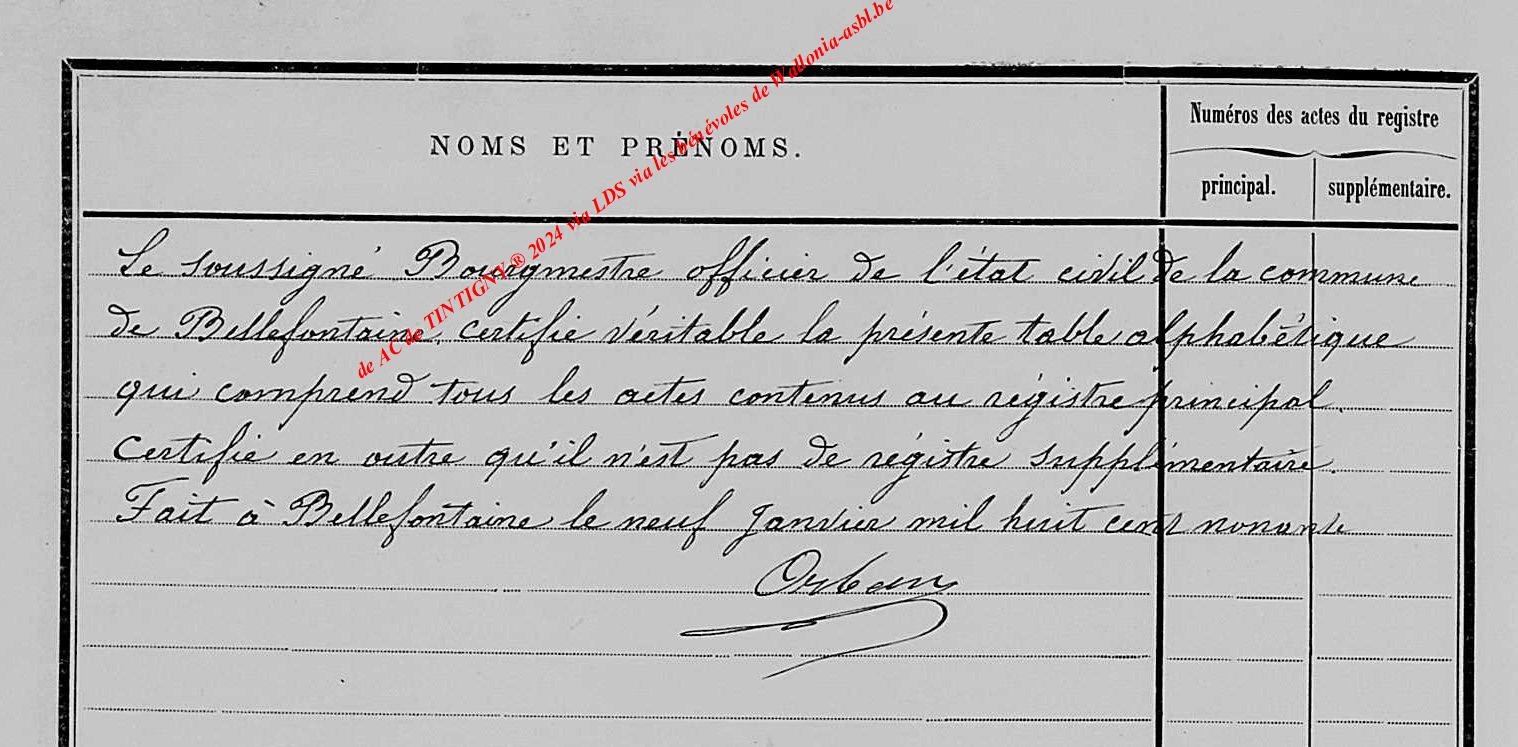 de AC de TINTIGNY ® 2024 via LDS via les bénévoles de Wallonia-asbl.be
NOMS ET PRÉNOMS.
Numéros des actes du registre
principal.
supplémentaire.
Le soussigné Bourgmestre officier de l'état civil de la commune
de Bellefontaine, certifie véritable la présente table alphabétique
qui comprend tous les actes contenus au régistre principal.
Certifie en outre qu'il n'est pas de régistre supplémentaire.
Fait à Bellefontaine le neuf Janvier mil huit cent nonante
Orban